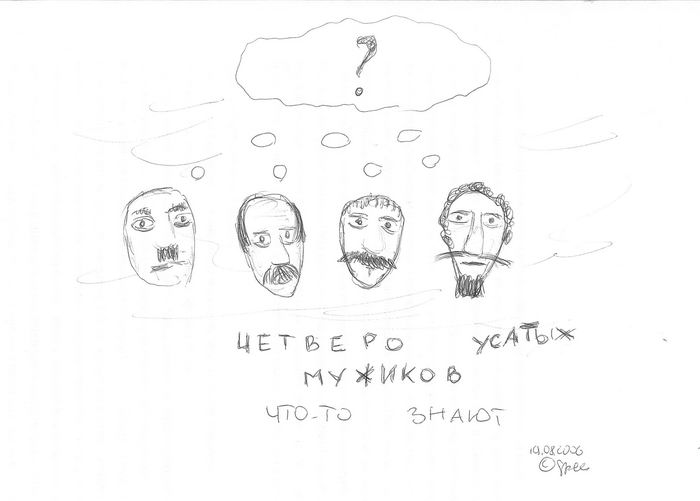 ?
ЧЕТВЕРО УСАТЫХ
МУЖИКОВ
ЧТО-ТО ЗНАЮТ
19.082006
©